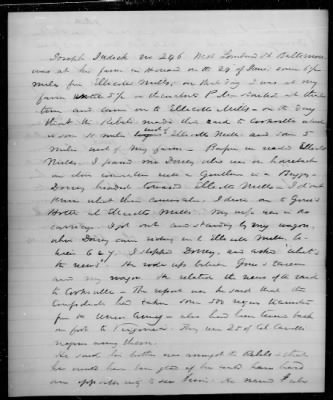 Joseph Judick no 246 West Lombard St Baltimore
was at his farm in Howard on the 29 of June some 5½
miles from Ellicotts Mills, on that day I was at my
farm until 5 P.M. or thereabout P.M. started at that
time and came on to Ellicotts Mills - on the day
that the Rebels made their raid to Cooksville which
is some 10 miles west of Ellicotts Mills and some 5
miles west of my farm - Before we reached Ellicotts
Mills, I passed Mr Dorsey who was on horseback
in close conversation with a Gentleman in a Buggy -
Dorsey headed toward Ellicotts Mills - I do not
know what their conversation. I drove on to
Hotel at Ellicotts Mills. My wife was in the
carriage. I got out and standing by my wagon,
when Dorsey came riding in to Ellicotts Mills, be-
tween 6 & 7. I stopped Dorsey, and asked what's
the news? He rode up between
and my wagon. He related the news of the raid
to Cooksville - The report was he said that the
Confederates had taken some 300 negroes
for the Union Army - also had been taken back
on foot to Virginia. They were 25 of Col Carrolls
negroes among them.
He said his brother was amongst the Rebels - that
he would have been glad if he could have had
an opportunity to see him. He said I also